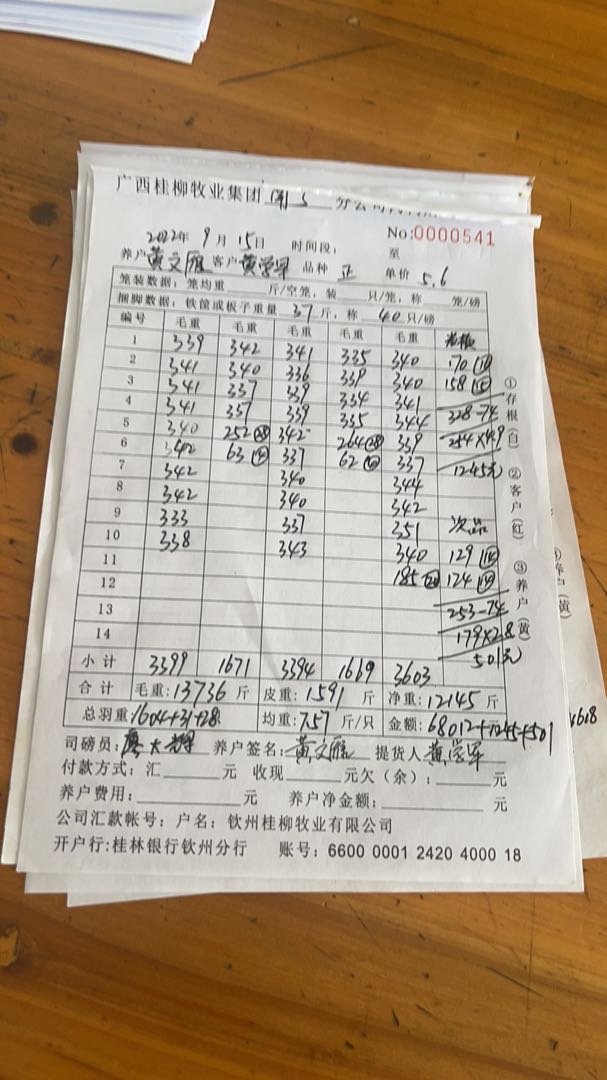 广西桂柳牧业集团 分公司
No:0000541
2022年 9月 15日 时间段: 至
养户 黄文雁 客户 黄学军 品种 正 单价 5.6
笼装数据: 笼均重 斤/空笼,装 只/笼,称 笼/磅
捆脚数据: 铁筐或板子重量 37 斤,称 40 只/磅
编号 毛重 毛重 毛重 毛重 毛重
1 339 342 341 335 340 170
2 341 340 336 339 340 158
3 341 337 339 334 341 328-74
4 341 337 339 335 344 254×4.9
5 340 252 342 264 339 1245元
6 342 63 337 62 337
7 342 340 344
8 342 340 342 次品
9 333 337 351 129
10 338 343 340 124
11 185 253-74
12 179×2.8
13 501元
14
小计 3399 1671 3394 1669 3603
合计 毛重:13736 斤 皮重:1591 斤 净重:12145 斤
总羽重 1604+31+28 均重:7.57 斤/只 金额:68012+1245+501
司磅员: 养户签名: 黄文雁 提货人 黄学军
付款方式: 汇 元 收现 元欠(余): 元
养户费用: 元 养户净金额: 元
公司汇款帐号: 户名: 钦州桂柳牧业有限公司
开户行:桂林银行钦州分行 账号: 6600 0001 2420 4000 18
①存根(白) ②客户(红) ③养户(黄)
养户(黄)